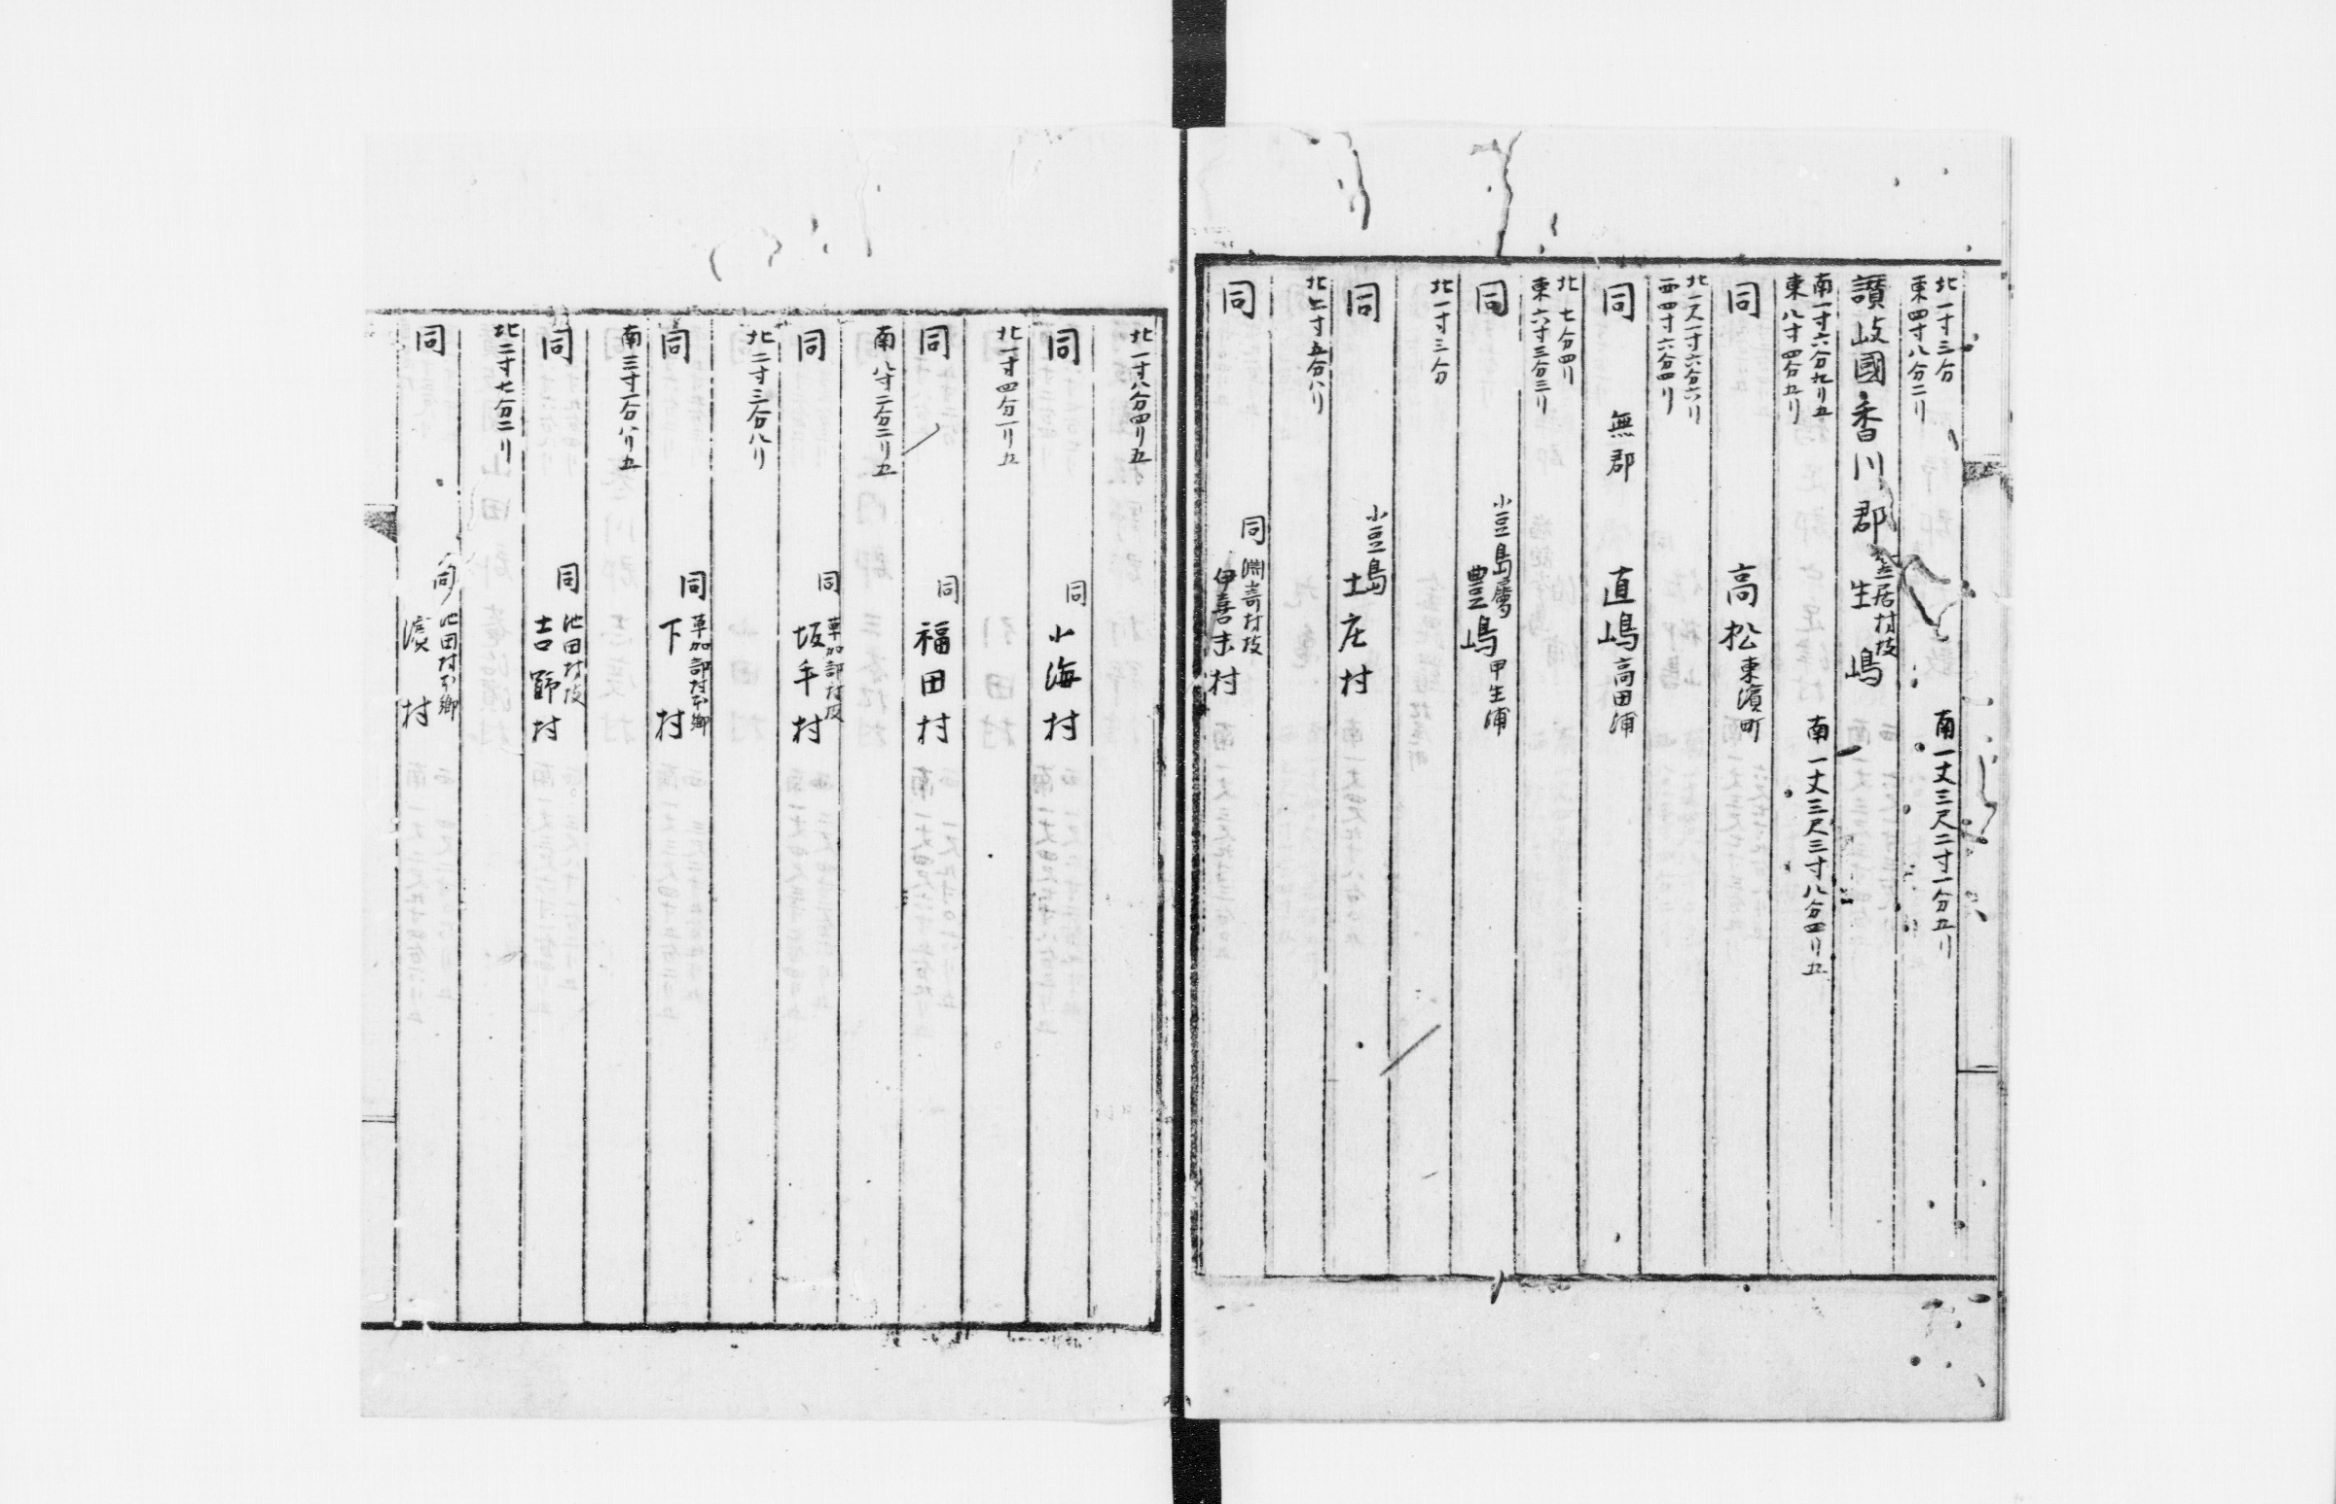 北一寸三分
東四寸八分二リ
南一丈三尺二寸一分五リ
讃岐國香川郡
笠居村技
生嶋
南一寸六分九リ五
東八寸四分五リ
南一丈三尺三寸八分四リ五
同
高松東濱町
北一尺一寸六分六リ
西四寸六分四リ
同
無郡
直嶋高田浦
北七分四リ
東六寸三分三リ
同
小豆島屬
豊嶋甲生浦
北一寸三分
同
小豆島
土庄村
北二寸五分八リ
同
同
淵崎村技
伊喜末村
北一寸八分四リ五
同
同
小海村
北一寸四分一リ五
同
同
福田村
南八寸二分二リ五
同
同
草加部村技
坂手村
北二寸三分八リ
同
同
草加部村本郷
下村
南三寸一分八リ五
同
同
池田村技
吉野村
北二寸七分二リ
同
同
池田村本郷
濱村